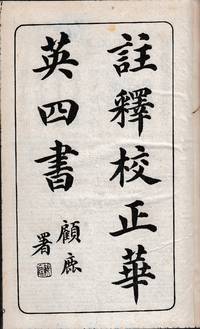 註釋校正華
英四書
顧鹿
署